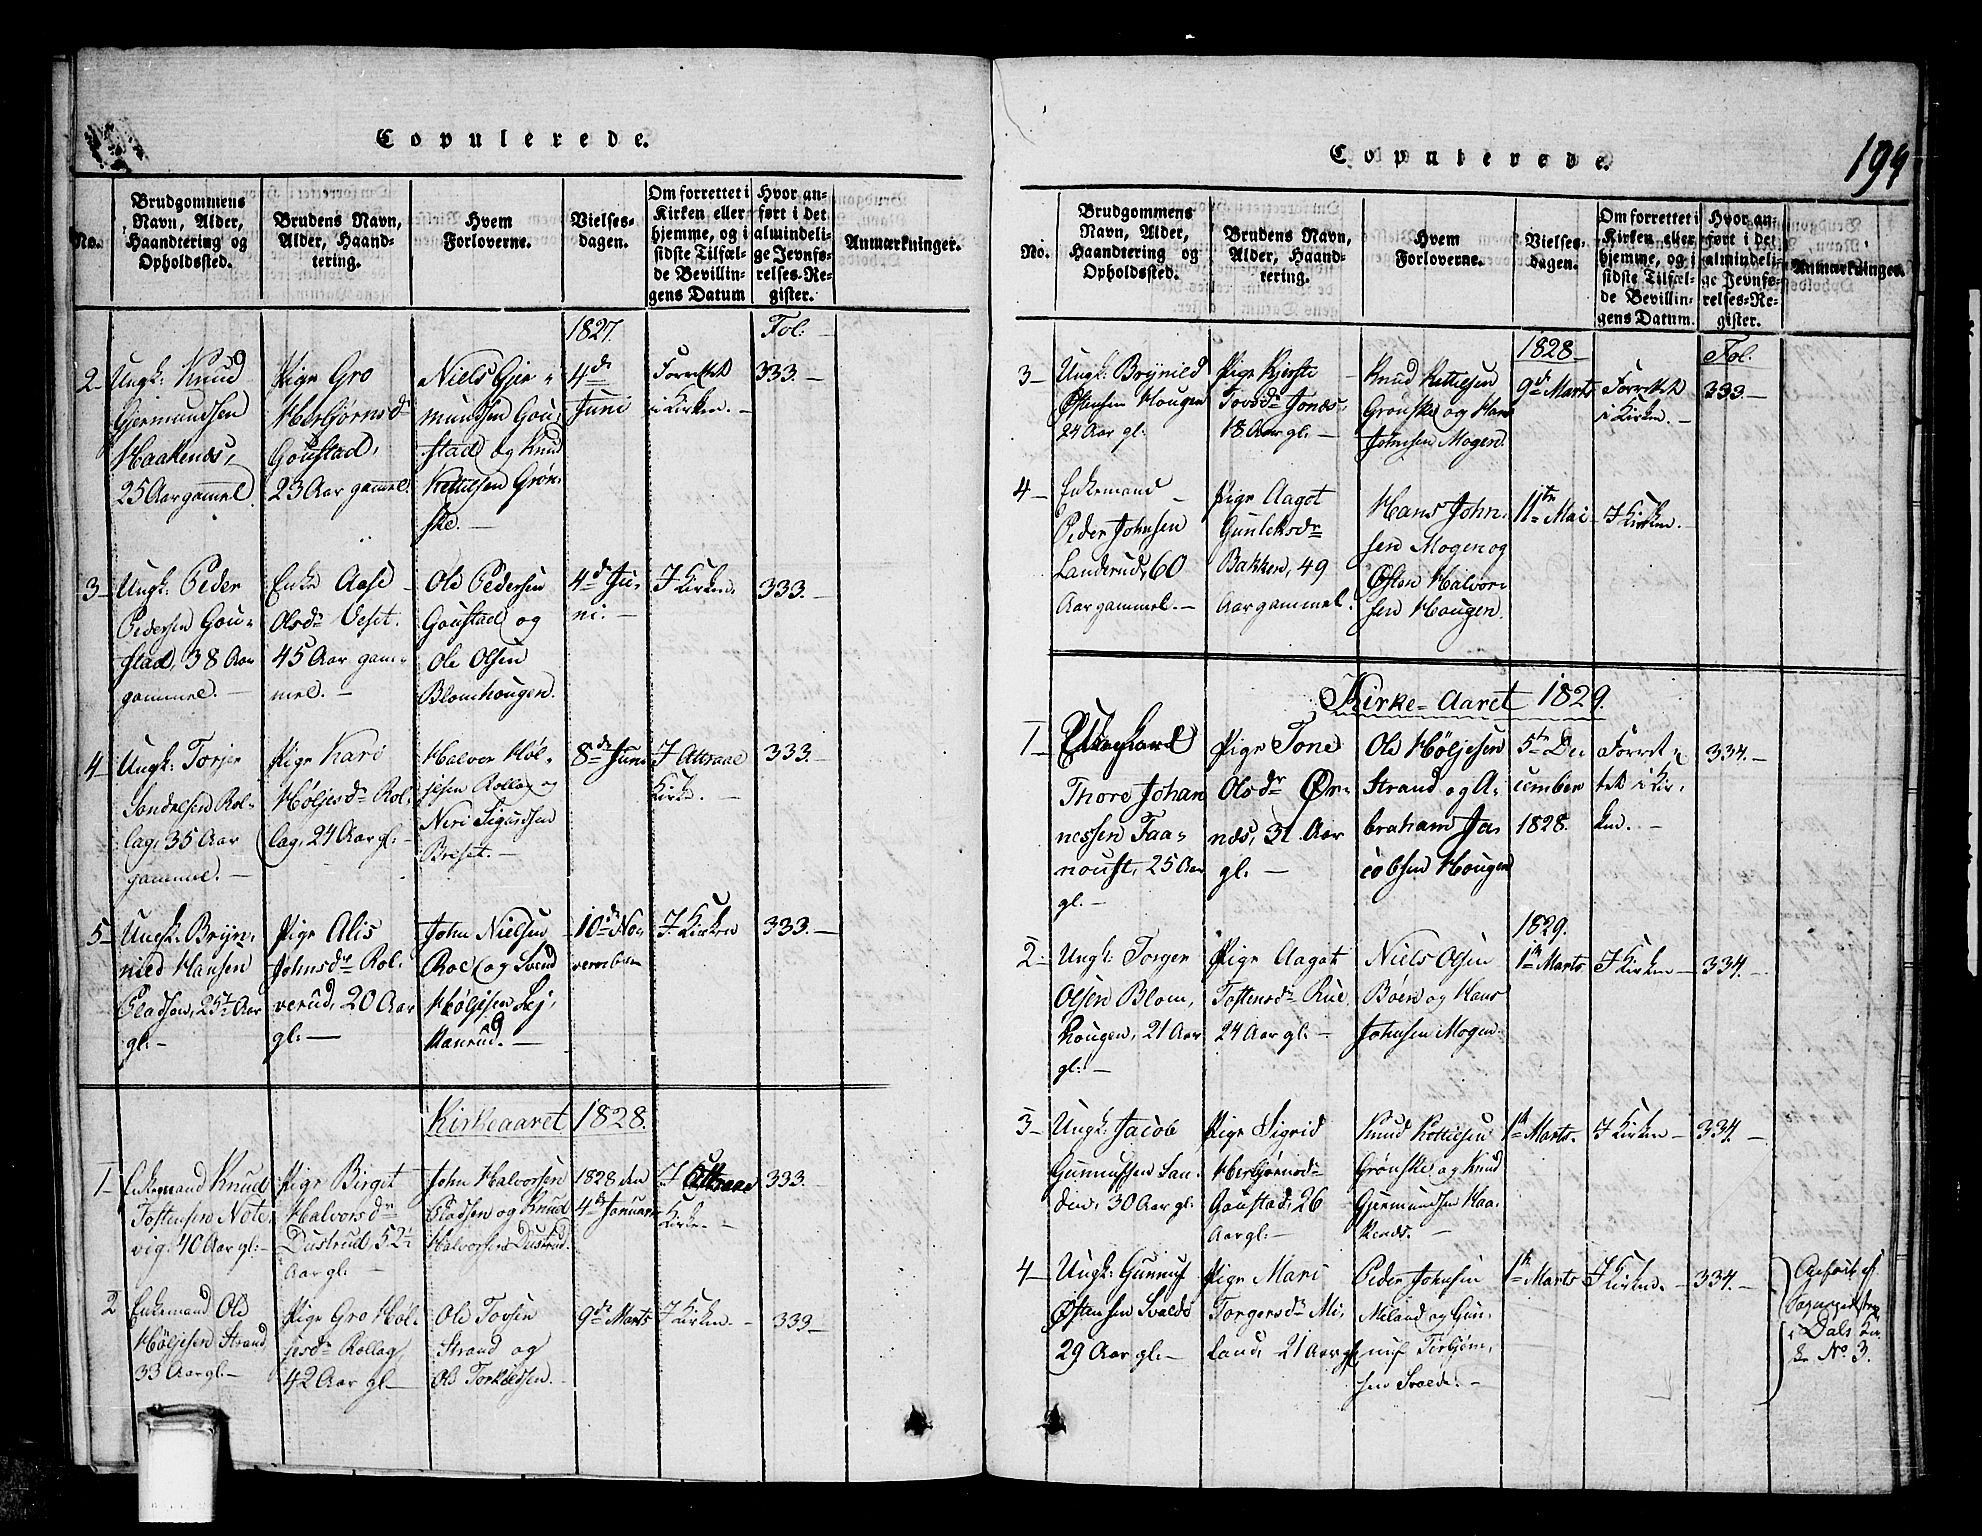 Copulerede.
No.
Brudgommens
Navn, Alder,
Haandtering og
Opholdssted.
Brudens Navn,
Alder, Haand-
tering.
Hvem
Forloverne.
Vielses-
dagen.
Om forrettet i
Kirken eller
hjemme, og i
sidste Tilfæl-
de Bevillin-
gens Datum
Hvor an-
ført i det
almindeli-
ge Jevnfø-
relses-Re-
gister.
Anmærkninger.
1827.
Fol:
2
Ungk: Knud
Gjermundsen
Haakenæs,
25 Aar gammel
Pige Gro
Herbjørnsdr
Goustad,
23 Aar gammel.
Niels Gjer-
mundsen Gou-
stad og Knud
Kettilsen Grøn-
ske. —
4de
Juni
Forrettet
i Kirken. —
333. —
3
Ungk: Peder
Pedersen Gou-
stad, 38 Aar
gammel. —
Enke Aase
Olsdr Veset.
45 Aar gam-
mel. —
Ole Pedersen
Goustad og
Ole Olsen
Blomhougen.
4de Ju-
ni. —
I Kirken.
333. —
4
Ungk: Torjer
Sondresen Rol-
lag, 35 Aar
gammel. —
Pige Kari
Høljesdr Rol-
lag, 24 Aar gl. —
Halvor Høl-
jesen Rollag og
Neri Sigurdsen
Breset. —
8de Juni
I Attraae
Kirke. —
333. —
5
Ungk: Bryn-
nild Hansen
Pladsen, 25 Aar
gl: —
Pige Alis
Johnsdr Rol-
verud, 20 Aar
gl: —
John Nielsen
Roe og Svend
Høljesen Lej-
Manrud. —
10de No-
vember
I Kirken
333. —
Kirkeaaret 1828.
1
Enkemand Knud
Tostensen Note-
vig, 40 Aar gl: —
Pige Birget
Halvorsdr
Dustrud, 52
Aar gl. —
John Halvorsen
Pladsen og Knud
Halvorsen Dustrud.
1828 den
4de Januar
I Attraae
Kirke. —
333. —
2
Enkemand Ole
Høljesen Strand
33 Aar gl. —
Pige Gro Høl-
jesdr Rollag
42 Aar gl. —
Ole Tovsen
Strand og
Ole Torkildsen.
9de Marts
I Kirken. —
333 —
Copulerede.
194
No.
Brudgommens
Navn, Alder,
Haandtering og
Opholdssted.
Brudens Navn,
Alder, Haand-
tering.
Hvem
Forloverne.
Vielses-
dagen.
Om forrettet i
Kirken eller
hjemme, og i
sidste Tilfæl-
de Bevillin-
gens Datum.
Hvor an-
ført i det
almindeli-
ge Jevnfø-
relses-Re-
gister.
Anmærkninger.
1828
Fol:
3
Ungk: Brynild
Østensen Hougen
24 Aar gl:
Pige Kjersti
Tovsdr Jonæs,
18 Aar gl: —
Knud Kettilsen
Grønske og Hans
Johnsen Mogen
9de Marts
Forrettet
i Kirken. —
333. —
4
Enkemand
Peder Johnsen
Landsrud, 60
Aar gammel. —
Pige Aagot
Gunleksdr
Bakken, 49
Aar gammel.
Hans John-
sen Mogen og
Østen Halvor-
sen Hougen.
11te Mai
I Kirken.
Kirke-Aaret 1829.
1
Ungkarl
Thore Johan-
nessen Faa-
noust, 25 Aar
gl. —
Pige Tone
Olsdr Ør-
næs, 31 Aar
gl. —
Ole Høljesen
Strand og A-
braham Ja-
cobsen Hougen
5te De-
cember
1828.
Forret-
tet i Kir-
ken. —
334. —
2
Ungk: Torger
Olsen Blom-
hougen, 21 Aar
gl: —
Pige Aagot
Tostensdr Rue
24 Aar gl: —
Niels Olsen
Bøen og Hans
Johnsen Mogen
1829.
1te Marts
I Kirken —
334. —
3
Ungk: Jacob
Gunnufsen San-
den, 30 Aar gl:
Pige Sigrid
Herbjørnsdr
Goustad, 26
Aar gl: —
Knud Kettilsen
Grønske og Knud
Gjermundsen Haa-
kenæs. —
1te Marts.
I Kirken —
334. —
4
Ungk: Gunnuf
Østensen Svalde
29 Aar gl: —
Pige Mari
Torgersdr Mi-
land, 21 Aar gl
Peder Johnsen
Miland og Gun-
nuf Torbjørn-
sen Svalde. —
1te Marts
I Kirken. —
334. —
i Dals
No 3.